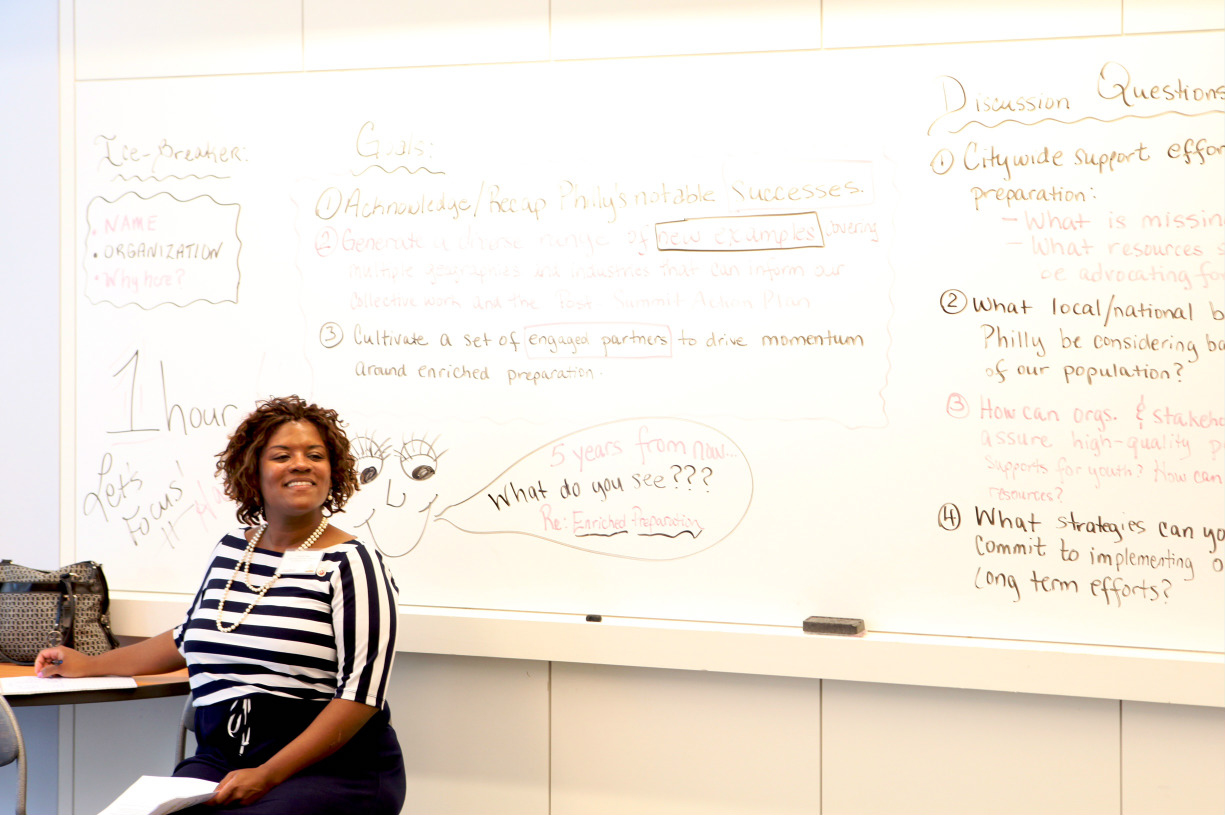 Ice-Breaker:
• NAME
• ORGANIZATION
• Why here?
1 hour
Let's
Focus!
Goals:
① Acknowledge/Recap Philly's notable Successes.
② Generate a diverse range of new examples covering
multiple geographies and industries that can inform our
collective work and the Post Summit Action Plan
③ Cultivate a set of engaged partners to drive momentum
around enriched preparation.
5 years from now...
What do you see???
Re: Enriched Preparation
Discussion Questions
① Citywide support effor
preparation:
- What is missin
- What resources s
be advocating for
② What local/national b
Philly be considering ba
of our population?
③ How can orgs. & stakeho
assure high-quality p
supports for youth? How can
resources?
④ What strategies can yo
commit to implementing o
long term efforts?